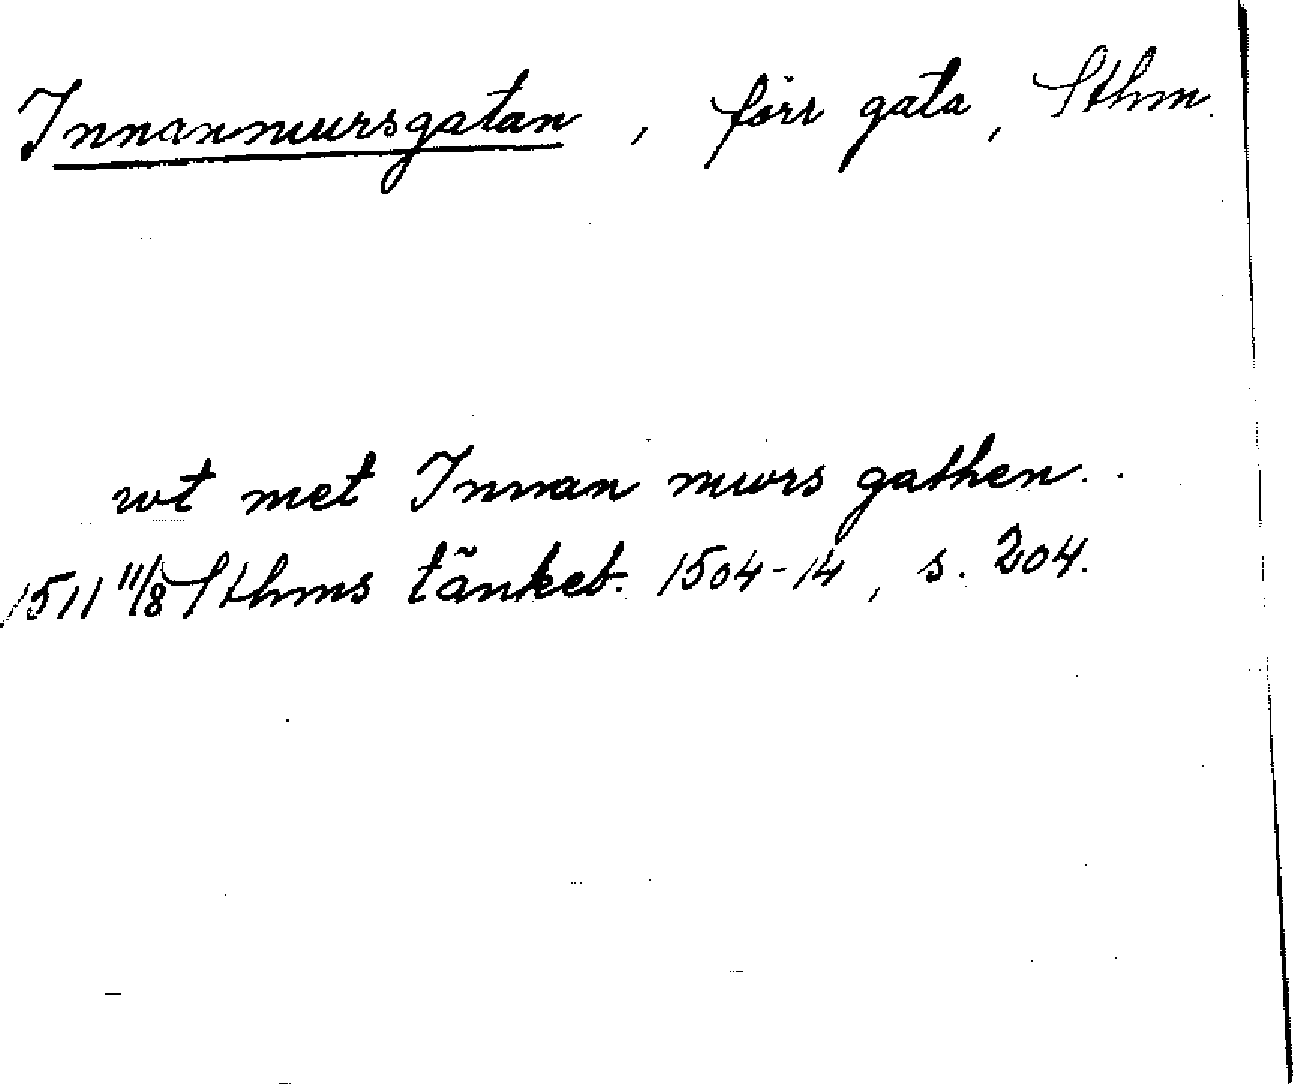 Innanmursgatan, förr gata, Sthm.
wt met Innan mwrs gathen..
1511 11/8 Sthms tänkeb. 1504-14, s. 204.